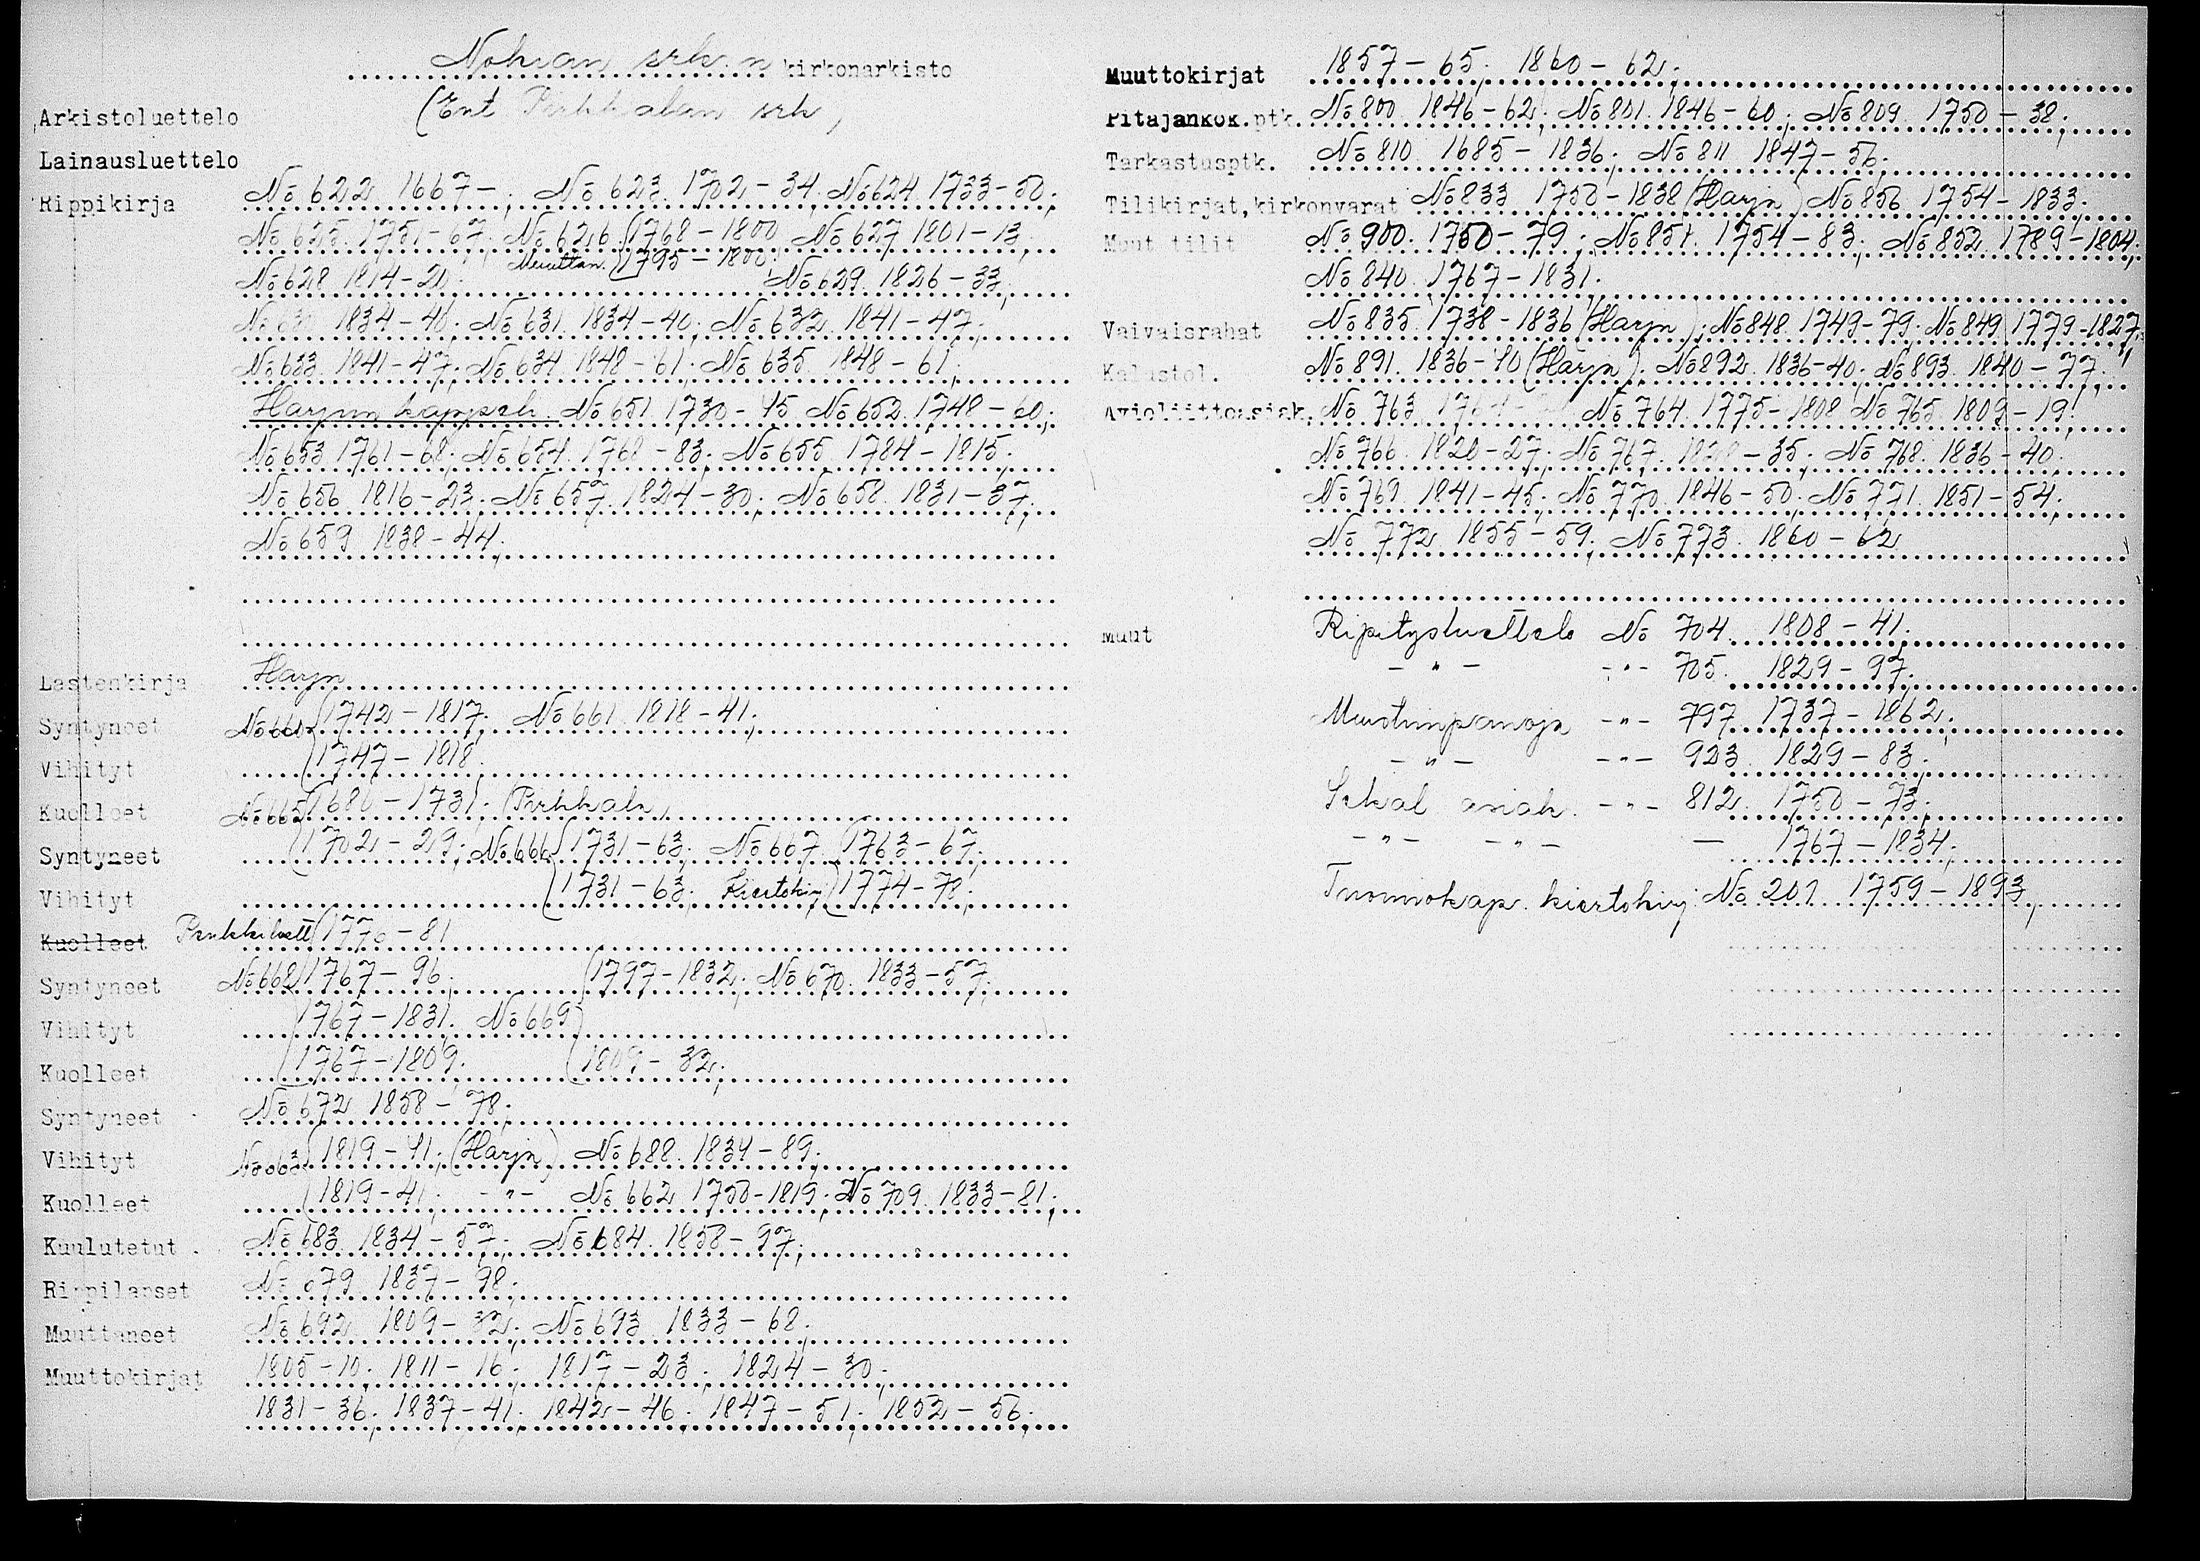 Nokian srk:n kirkonarkisto
(Ent Pirkkalan srk)
Arkistoluettelo
Lainausluettelo
Rippikirja No 622 1667-; No 623 1702-34; No 624 1733-50;
No 625 1751-67; No 626 (1768-1800 No 627 1801-13;
Muuttan. (1795-1800;
No 628 1814-20; No 629 1826-33;
No 630 1834-40; No 631 1834-40; No 632 1841-47;
No 633 1841-47; No 634 1848-61; No 635 1848-61;
Harjun kappsrk. No 651 1730-45 No 652 1748-60;
No 653 1761-68; No 654 1768-83; No 655 1784-1815;
No 656 1816-23; No 657 1824-30; No 658 1831-37;
No 659 1838-44;
Lastenkirja Harju
Syntyneet No 660 (1742-1817; No 661 1818-41;
Vihityt (1747-1818;
Kuolleet No 665 (1686-1731; (Pirkkala)
Syntyneet (1702-29; No 666 (1731-63; No 667 (1763-67;
Vihityt (1731-63; Kiertokirj (1774-78;
Kuolleet Penkkiluett (1770-81
Syntyneet No 668 (1767-96; (1797-1832; No 670 1833-57;
Vihityt (1767-1831. No 669
Kuolleet (1767-1809. (1809-32;
Syntyneet No 672 1858-78;
Vihityt No 663 (1819-41; (Harju) No 688 1834-89;
Kuolleet (1819-41; -"- No 662 1750-1819; No 709 1833-81;
Kuulutetut No 683 1834-57; No 684 1858-97;
Rippilapset No 679 1837-98;
Muuttaneet No 692 1809-32; No 693 1833-68;
Muuttokirjat 1805-10; 1811-16; 1817-23; 1824-30;
1831-36; 1837-41; 1842-46; 1847-51; 1852-56;
Muuttokirjat 1857-65; 1860-62;
Pitäjänkok.ptk. No 800 1846-62; No 801 1846-60; No 809 1750-38;
Tarkastusptk. No 810 1685-1836; No 811 1847-56;
Tilikirjat, kirkonvarat No 833 1750-1838 (Harju) No 856 1754-1833;
Muut tilit No 900 1750-79; No 851 1754-83; No 852 1789-1804;
No 840 1767-1831;
Vaivaisrahat No 835 1738-1836 (Harju); No 848 1749-79; No 849 1779-1827;
Kalustol. No 891 1836-40 (Harju); No 892 1836-40; No 893 1840-77;
Avioliittoasiak. No 763 No 764 1775-1808 No 765 1809-19;
No 766 1820-27; No 767 1828-35; No 768 1836-40;
No 769 1841-45; No 770 1846-50; No 771 1851-54;
No 772 1855-59; No 773 1860-62
Muut Ripitysluettelo No 704 1808-41;
-"- -"- 705 1829-97;
Muistiinpanoja -"- 797 1737-1862;
-"- -"- 923 1829-83;
Sekal asiak. -"- 812 1750-73;
-"- -"- - 1767-1834;
Tuomiokap. kiertokirj No 201 1759-1893;